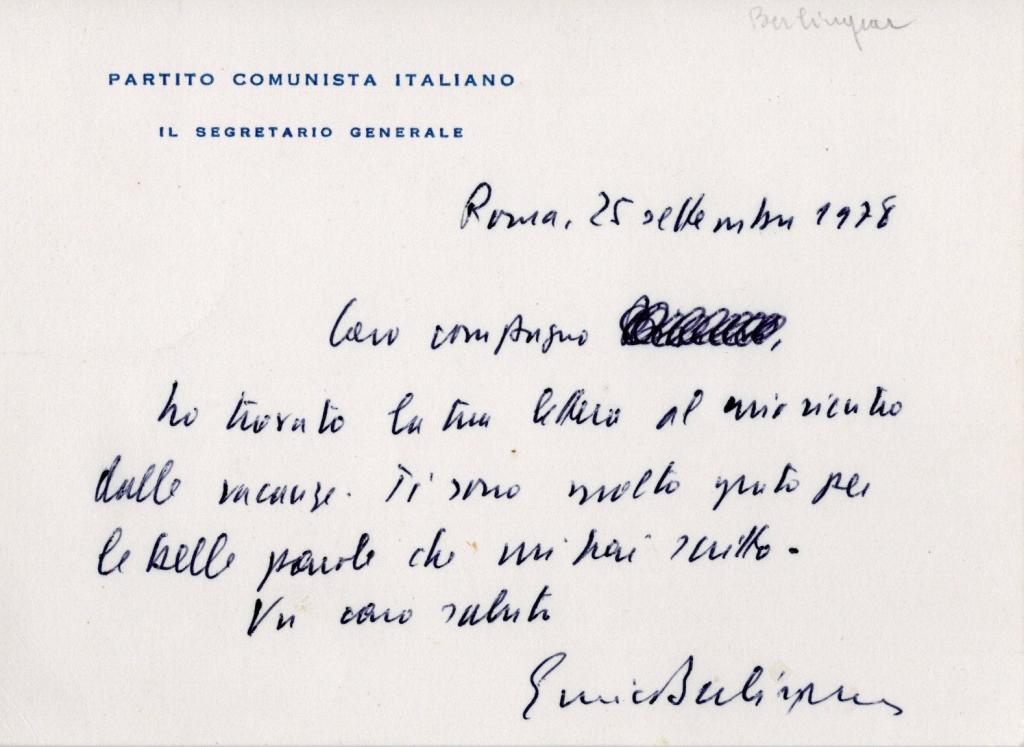 Berlinguer
PARTITO COMUNISTA ITALIANO
IL SEGRETARIO GENERALE
Roma, 25 settembre 1978
Caro compagno
ho trovato la tua lettera al mio rientro
dalle vacanze. Ti sono molto grato per
le belle parole che mi hai scritto.
Un caro saluto
Enrico Berlinguer